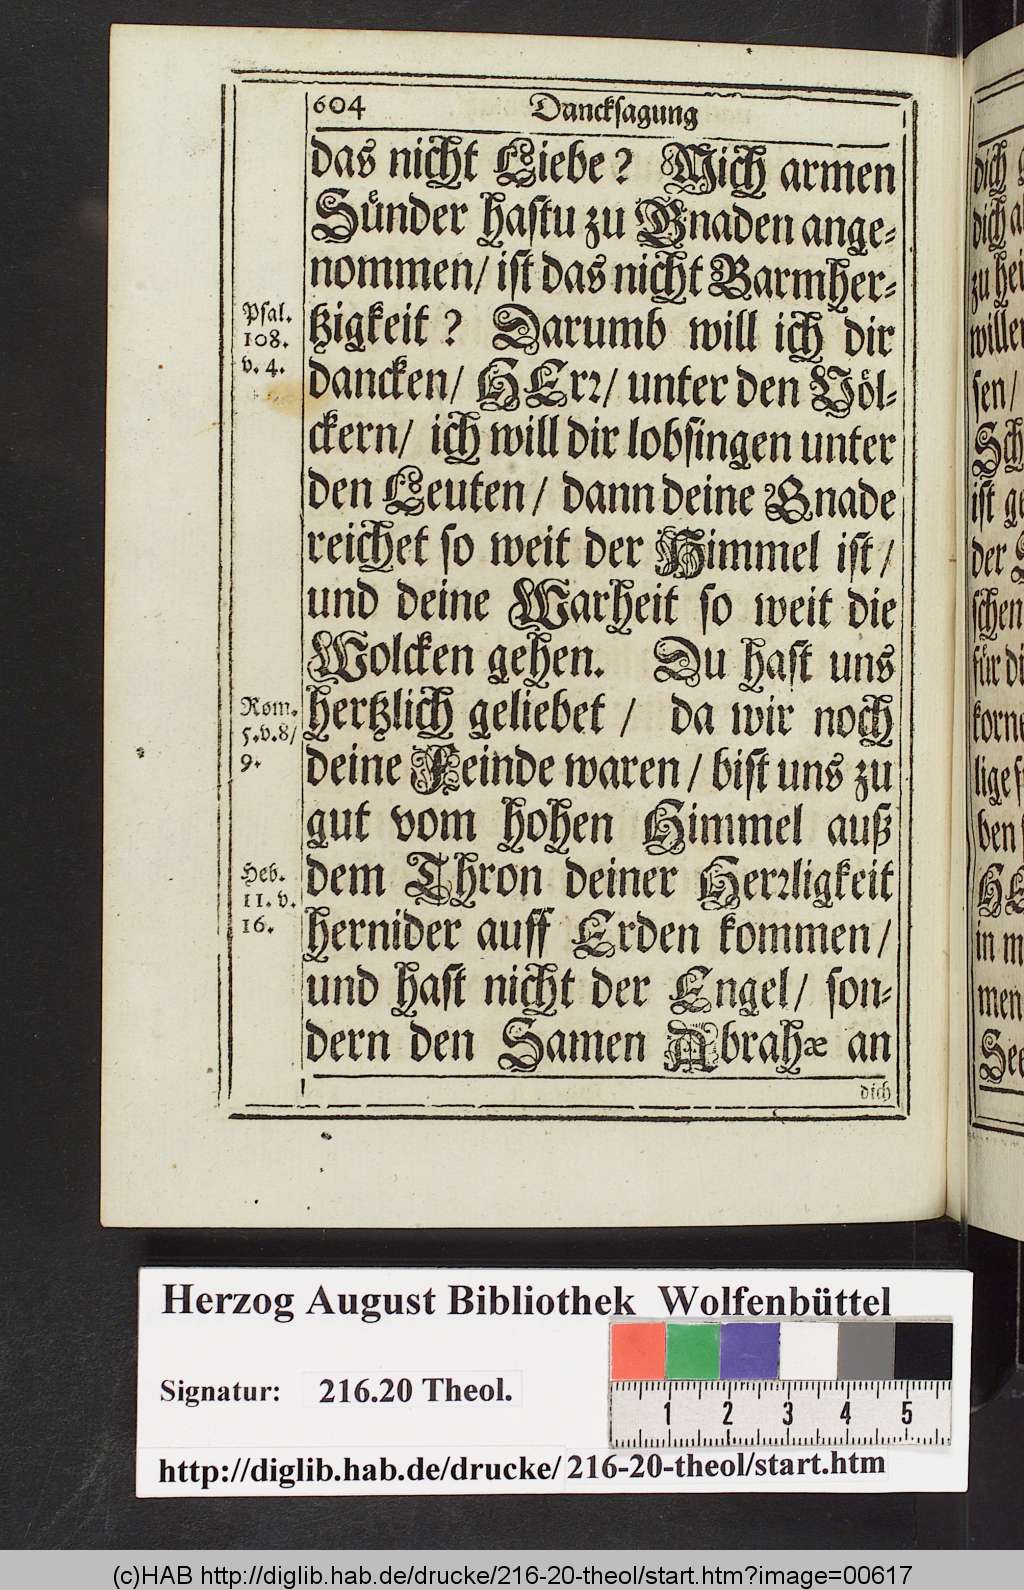 604 Danckſagung
das nicht Liebe? Mich armen
Sünder haſtu zu Gnaden ange⸗
nommen/ iſt das nicht Barmher⸗
tzigkeit? Darumb will ich dir
dancken/ HErꝛ/ unter den Völ⸗
ckern/ ich will dir lobſingen unter
den Leuten/ dann deine Gnade
reichet ſo weit der Himmel iſt/
und deine Warheit ſo weit die
Wolcken gehen. Du haſt uns
hertzlich geliebet/ da wir noch
deine Feinde waren/ biſt uns zu
gut vom hohen Himmel auß
dem Thron deiner Herꝛligkeit
hernider auff Erden kommen/
und haſt nicht der Engel/ ſon⸗
dern den Samen Abrahæ an
dich
Pſal.
108.
v. 4.
Rom.
5.v.8/
9.
Heb.
11. v.
16.
dich
dich a
zu hei
willen
ſen/
Sch
iſt ge
der
ſchen
für di
korne
lige ſ
ben
HE
in m
men
See
Herzog August Bibliothek Wolfenbüttel
Signatur: 216.20 Theol.
1 2 3 4 5
http://diglib.hab.de/drucke/216-20-theol/start.htm
(c)HAB http://diglib.hab.de/drucke/216-20-theol/start.htm?image=00617